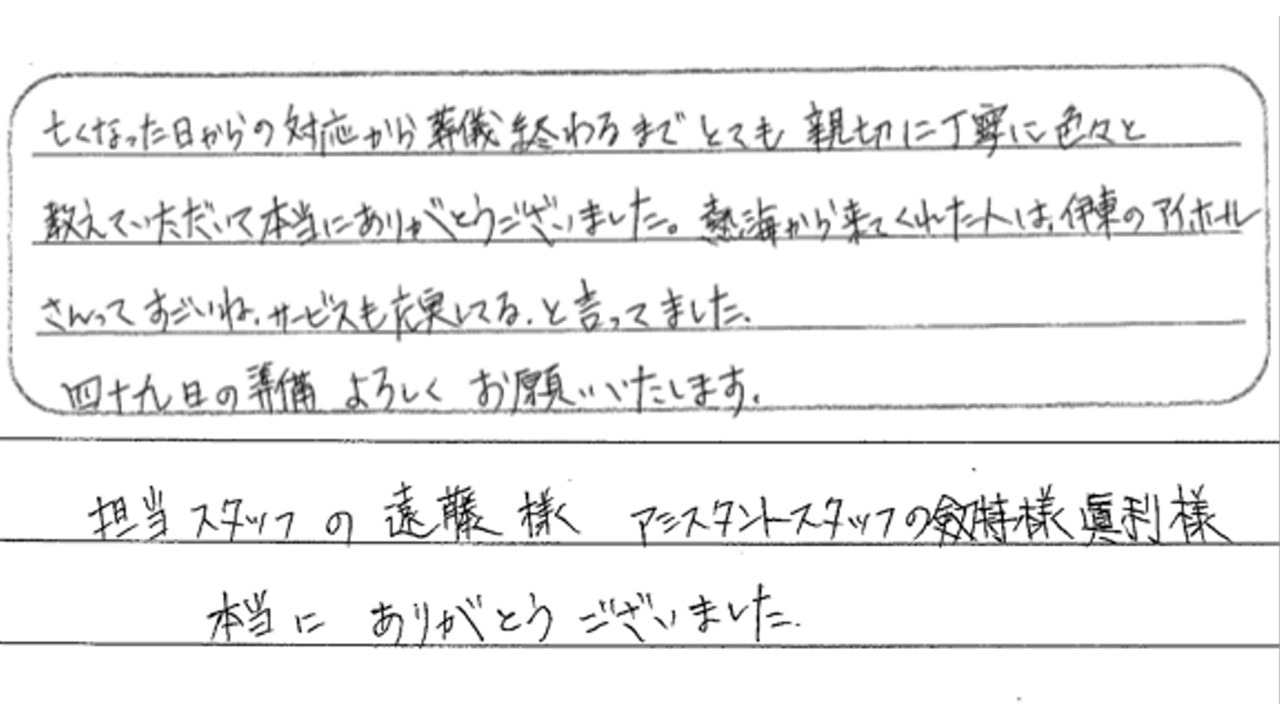 亡くなった日からの対応から葬儀終わるまでとても親切に丁寧に色々と
教えていただいて本当にありがとうございました。熱海から来てくれた人は、伊東のアイホール
さんってすごいね、サービスも充実してる、と言ってました。
四十九日の準備よろしくお願いいたします。
担当スタッフの遠藤様 アシスタントスタッフの剱持様眞利様
本当にありがとうございました。